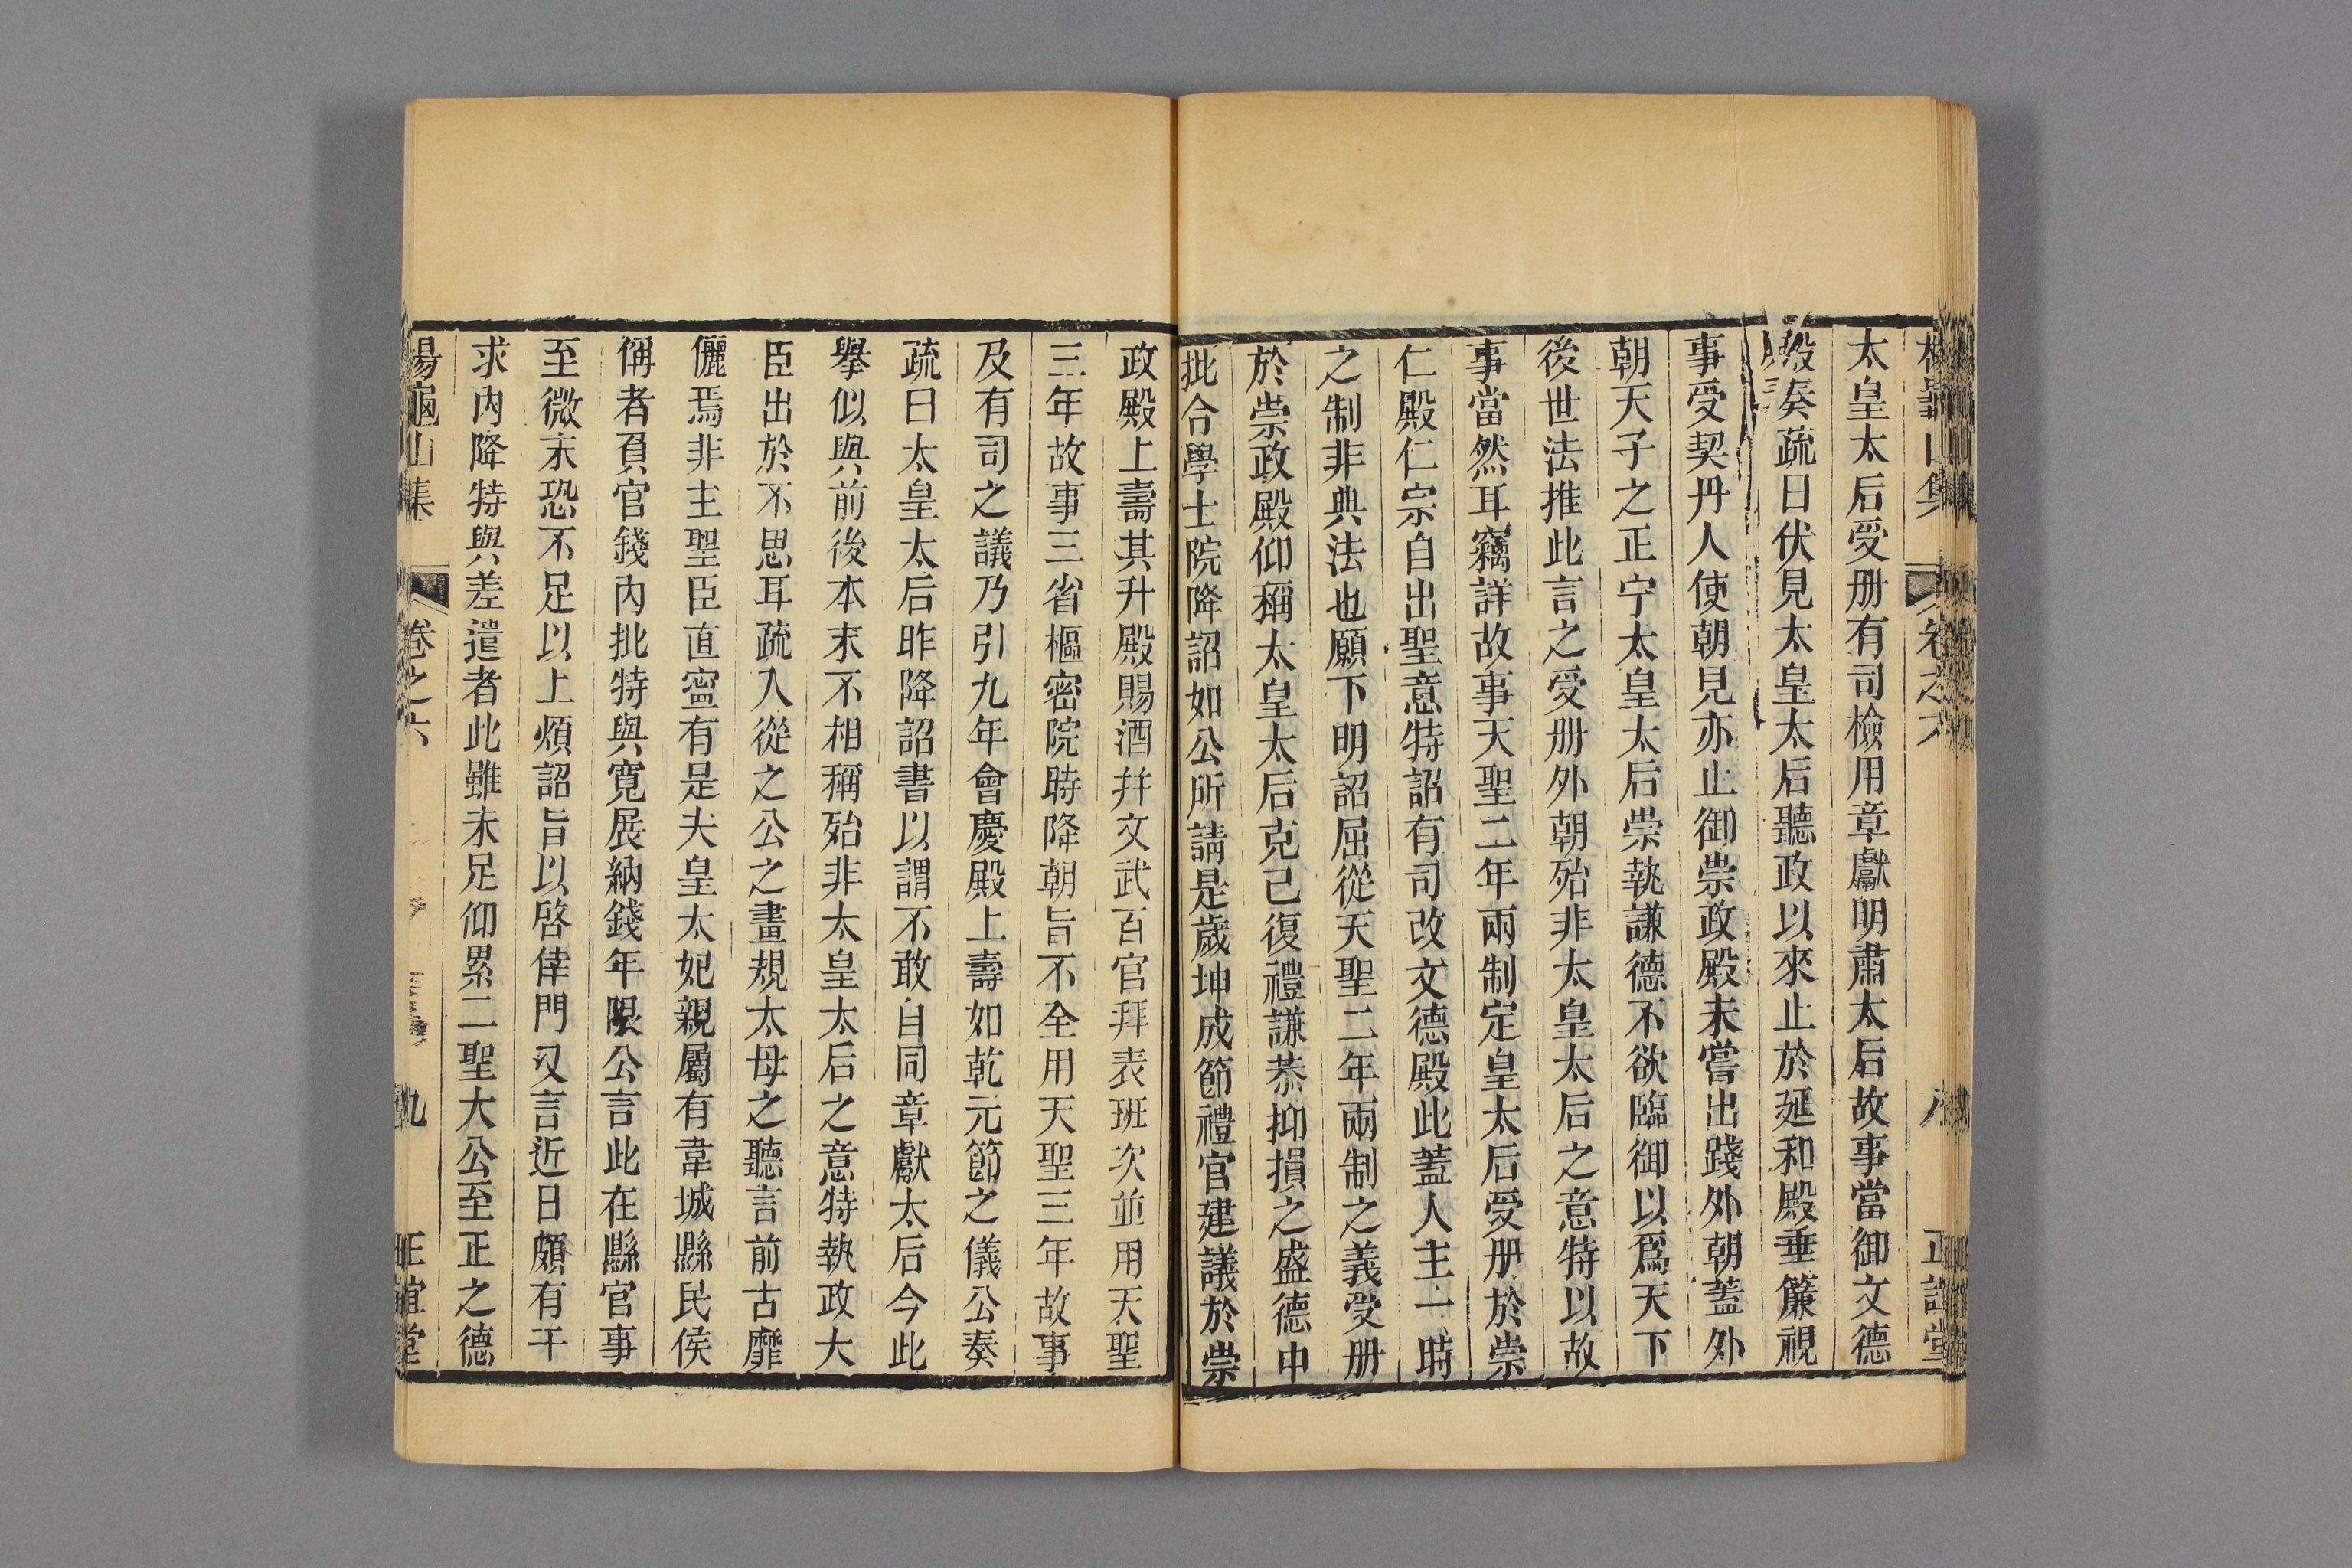 太皇太后受册有司檢用章獻明肅太后故事當御文德
殿奏疏曰伏見太皇太后聽政以來止於延和殿垂簾視
事受契丹人使朝見亦止御崇政殿未嘗出踐外朝蓋外
朝天子之正宁太皇太后崇執謙德不欲臨御以爲天下
後世法推此言之受册外朝殆非太皇太后之意特以故
事當然耳竊詳故事天聖二年兩制定皇太后受册於崇
仁殿仁宗自出聖意特詔有司改文德殿此蓋人主一時
之制非典法也願下明詔屈從天聖二年兩制之義受册
於崇政殿仰稱太皇太后克己復禮謙恭抑損之盛德中
批令學士院降詔如公所請是歲坤成節禮官建議於崇
政殿上壽其升殿賜酒并文武百官拜表班次並用天聖
三年故事三省樞密院時降朝旨不全用天聖三年故事
及有司之議乃引九年會慶殿上壽如乾元節之儀公奏
疏曰太皇太后昨降詔書以謂不敢自同章獻太后今此
舉似與前後本末不相稱殆非太皇太后之意特執政大
臣出於不思耳疏入從之公之晝規太母之聽言前古靡
儷焉非主聖臣直寧有是夫皇太妃親屬有韋城縣民侯
偁者負官錢內批特與寬展納錢年限公言此在縣官事
至微末恐不足以上煩詔旨以啓倖門又言近日頗有干
求內降特與差遣者此雖未足仰累二聖大公至正之德
楊龜山集 卷之六 九 正誼堂